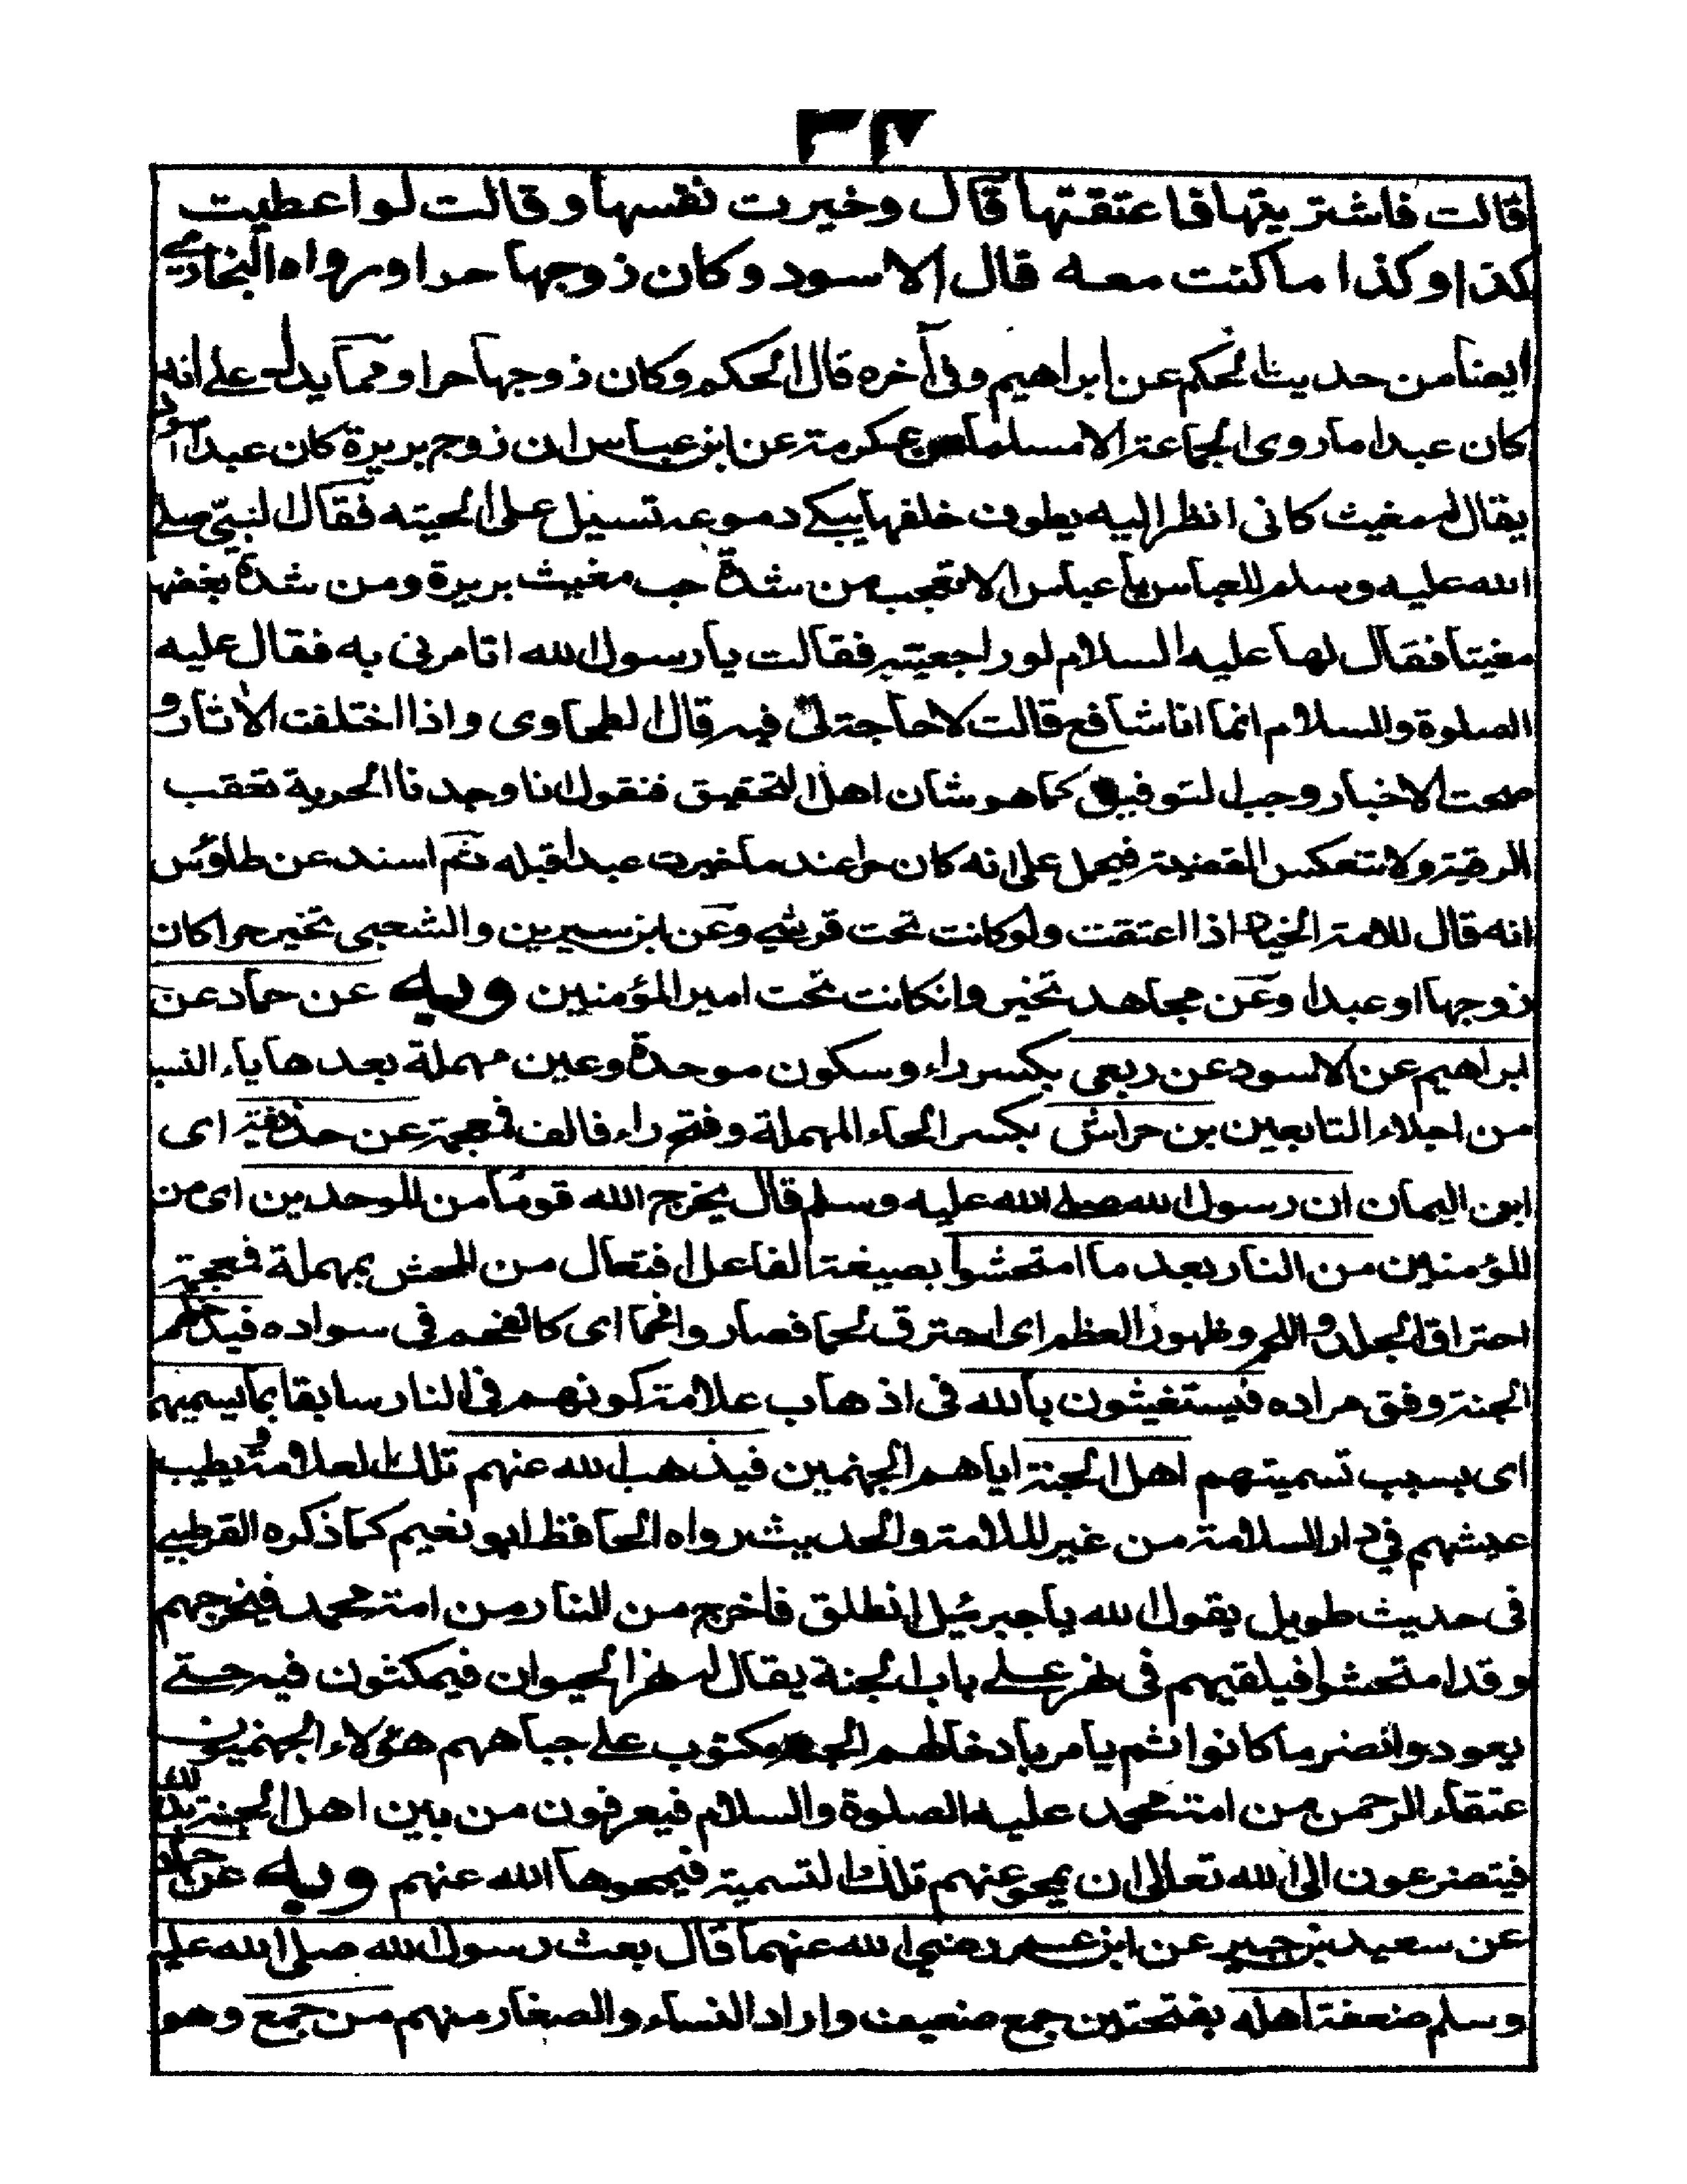 قالت فاشتريتها فاعتقتها قال وخيرت نفسها وقالت لو اعطيت
كذا وكذا ما كنت معه قال الاسود وكان زوجها حرا ورواه البخاري
ايضا من حديث الحكم عن ابراهيم وفى آخره قال الحكم وكان زوجها حرا ومما يدل على انه
كان عبدا ما روى الجماعة الا مسلما عن عكرمة عن ابن عباس ان زوج بريرة كان عبدا اسود
يقال له مغيث كانى انظر اليه يطوف خلفها يبكى دموعه تسيل على لحيته فقال النبى صلى
الله عليه وسلم للعباس يا عباس الا تعجب من شدة حب مغيث بريرة ومن شدة بغضها
مغيثا فقال لها عليه السلام لو راجعتيه فقالت يا رسول الله اتامرنى به فقال عليه
الصلوة والسلام انما انا شافع قالت لا حاجة لى فيه قال الطحاوى واذا اختلفت الاثار و
صحت الاخبار وجب التوفيق كما هو شان اهل التحقيق فنقول انا وجدنا الحرية تعقب
الرقية ولا تنعكس القضية فيحمل على انه كان حرا عند ما خيرت عبدا قبله ثم اسند عن طاؤس
انه قال للامة الخيار اذا اعتقت ولو كانت تحت قرشى وعن ابن سيرين والشعبى تخير حرا كان
زوجها او عبدا وعن مجاهد تخير وانكانت تحت امير المؤمنين وبه عن حماد عن
ابراهيم عن الاسود عن ربعى بكسر راء وسكون موحدة وعين مهملة بعدها ياء النسب
من اجلاء التابعين بن حراش بكسر الحاء المهملة وفتح راء فالف فمعجمة عن حذيفة اى
ابن اليمان ان رسول الله صلى الله عليه وسلم قال يخرج الله قوما من الموحدين اى من
المؤمنين من النار بعد ما امتحشوا بصيغة الفاعل افتعال من المحش بمهملة فمعجمة
احتراق الجلد واللحم وظهور العظم اى احترق لحما فصاروا فحما اى كالفحم فى سواده فيدخلهم
الجنة وفق مراده فيستغيثون بالله فى اذهاب علامة كونهم فى النار سابقا بما يسميهم
اى بسبب تسميتهم اهل الجنة اياهم الجهنمين فيذهب الله عنهم تلك العلامة ويطيب
عيشهم فى دار السلامة من غير الملامة والحديث رواه الحافظ ابو نعيم كما ذكره القرطبى
فى حديث طويل يقول الله يا جبرئيل انطلق فاخرج من النار من امة محمد فيخرجهم
وقد امتحشوا فيلقيهم فى نهر على باب الجنة يقال له نهر الحيوان فيمكثون فيه حتى
يعودوا انضر ما كانوا ثم يامر بادخالهم الجنة مكتوب على جباههم هؤلاء الجهنميون
عتقاء الرحمن من امة محمد عليه الصلوة والسلام فيعرفون من بين اهل الجنة بذلك
فيتضرعون الى الله تعالى ان يمحو عنهم تلك التسمية فيمحوها الله عنهم وبه عن حماد
عن سعيد بن جبير عن ابن عمر رضى الله عنهما قال بعث رسول الله صلى الله عليه
وسلم ضعفة اهله بفتحتين جمع ضعيف واراد النساء والصغار منهم من جمع وهو